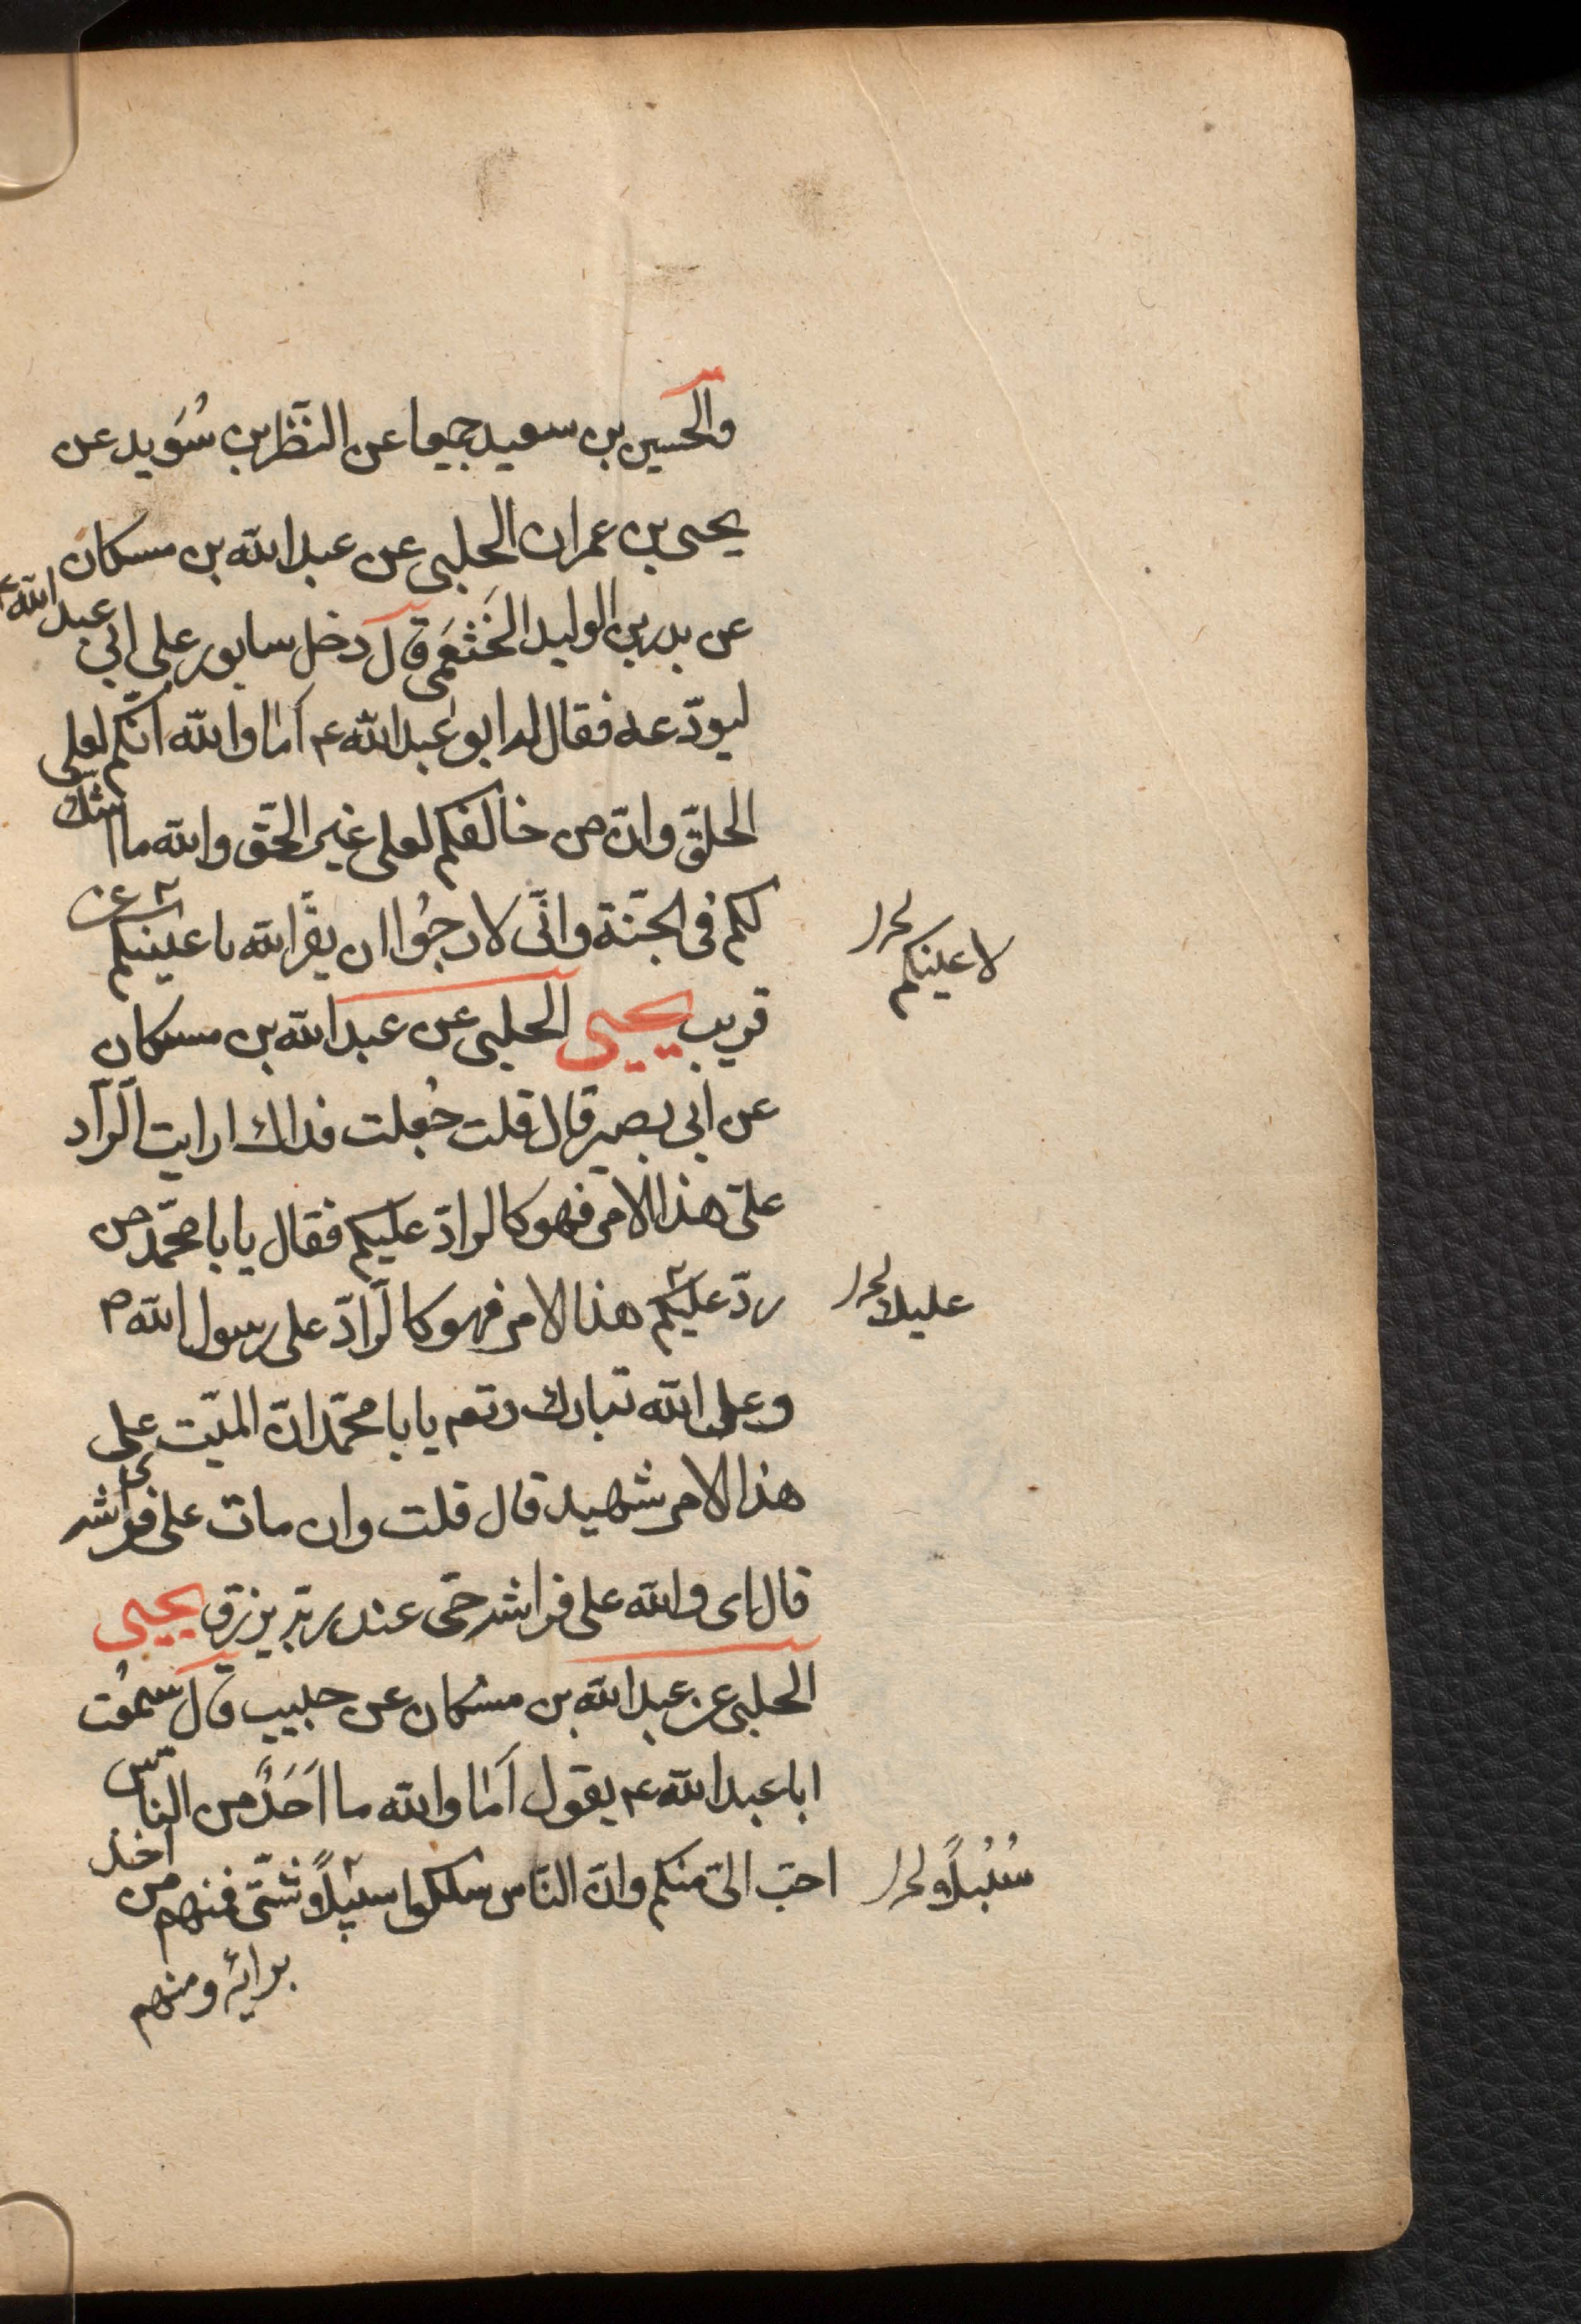 والحسين بن سعيد جميعا عن النظر بن سُوَيد عن
يحيى بن عمران الحلبى عن عبد الله بن مسكان
عن بدر بن الوليد الخَثْعَمى قال دخل سابور على ابى عبد الله ع
ليودّعه فقال له ابو عبد الله ع أما والله انّكم لعلى
الحقّ وانّ من خالفكم لعلى غير الحقّ والله ما اشك
لكم فى الجنّة وانّى لارجُوا ان يقرَّ الله باعينكم عن
لاعينكم
قريب يحيى الحلبى عن عبد الله بن مسكان
عن ابى بصير قال قلت جُعلت فداك ارايت الرّاد
علىّ هذا الامر فهو كالرادّ عليكم فقال يا با محمّد من
ردّ عليكم هذا الامر فهو كالرّادّ على رسول الله ص
عليك
وعلى الله تبارك وتعم يا با محمّد انّ الميّت على
هذا الامر شهيد قال قلت وان مات على فراشه
قال اى والله على فراشه حىّ عند ربّه يرزق يحيى
الحلبى عن عبد الله بن مسكان عن حبيب قال سمعُت
ابا عبد الله ع يقول أما والله ما اَحَدٌ من النّاس
احبّ الىّ منكم وانّ النّاس سلكوا سبيلًا وشتّى فمنهم من اخذ
سُبُبلًا
برائه ومنهم